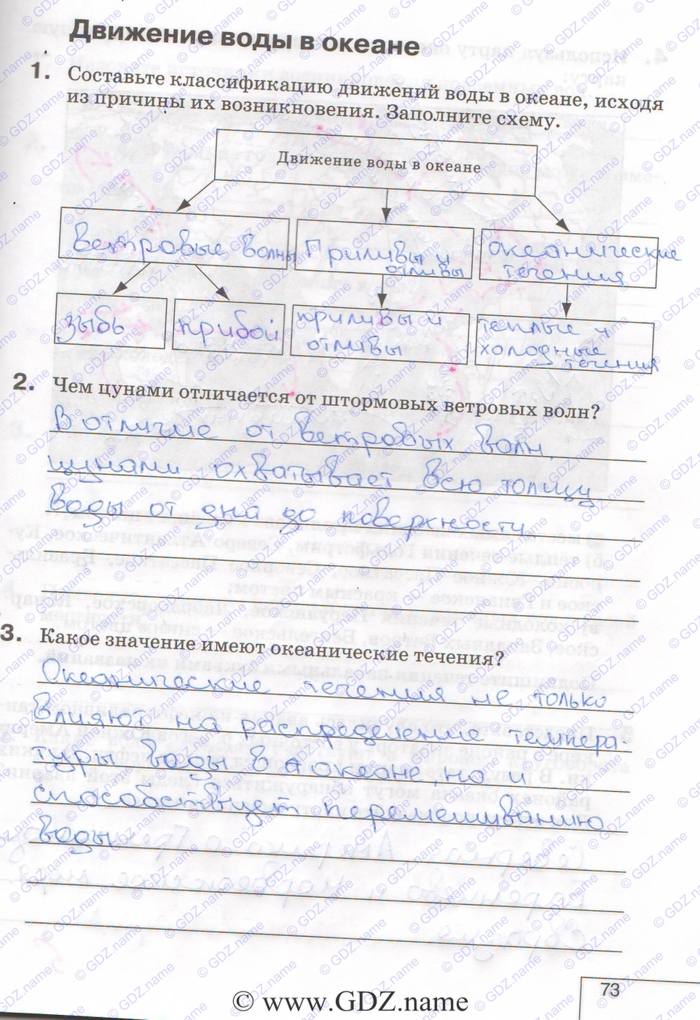 Движение воды в океане
1. Составьте классификацию движений воды в океане, исходя
из причины их возникновения. Заполните схему.
Движение воды в океане
ветровые волны
Приливы и
отливы
океанические
течения
зыбь
прибой
приливы и
отливы
теплые и
холодные
течения
2. Чем цунами отличается от штормовых ветровых волн?
В отличие от ветровых волн,
цунами охватывает всю толщу
воды от дна до поверхности.
3. Какое значение имеют океанические течения?
Океанические течения не только
влияют на распределение темпера-
туры воды в океане но и
способствует перемешиванию
воды
73
© www.GDZ.name